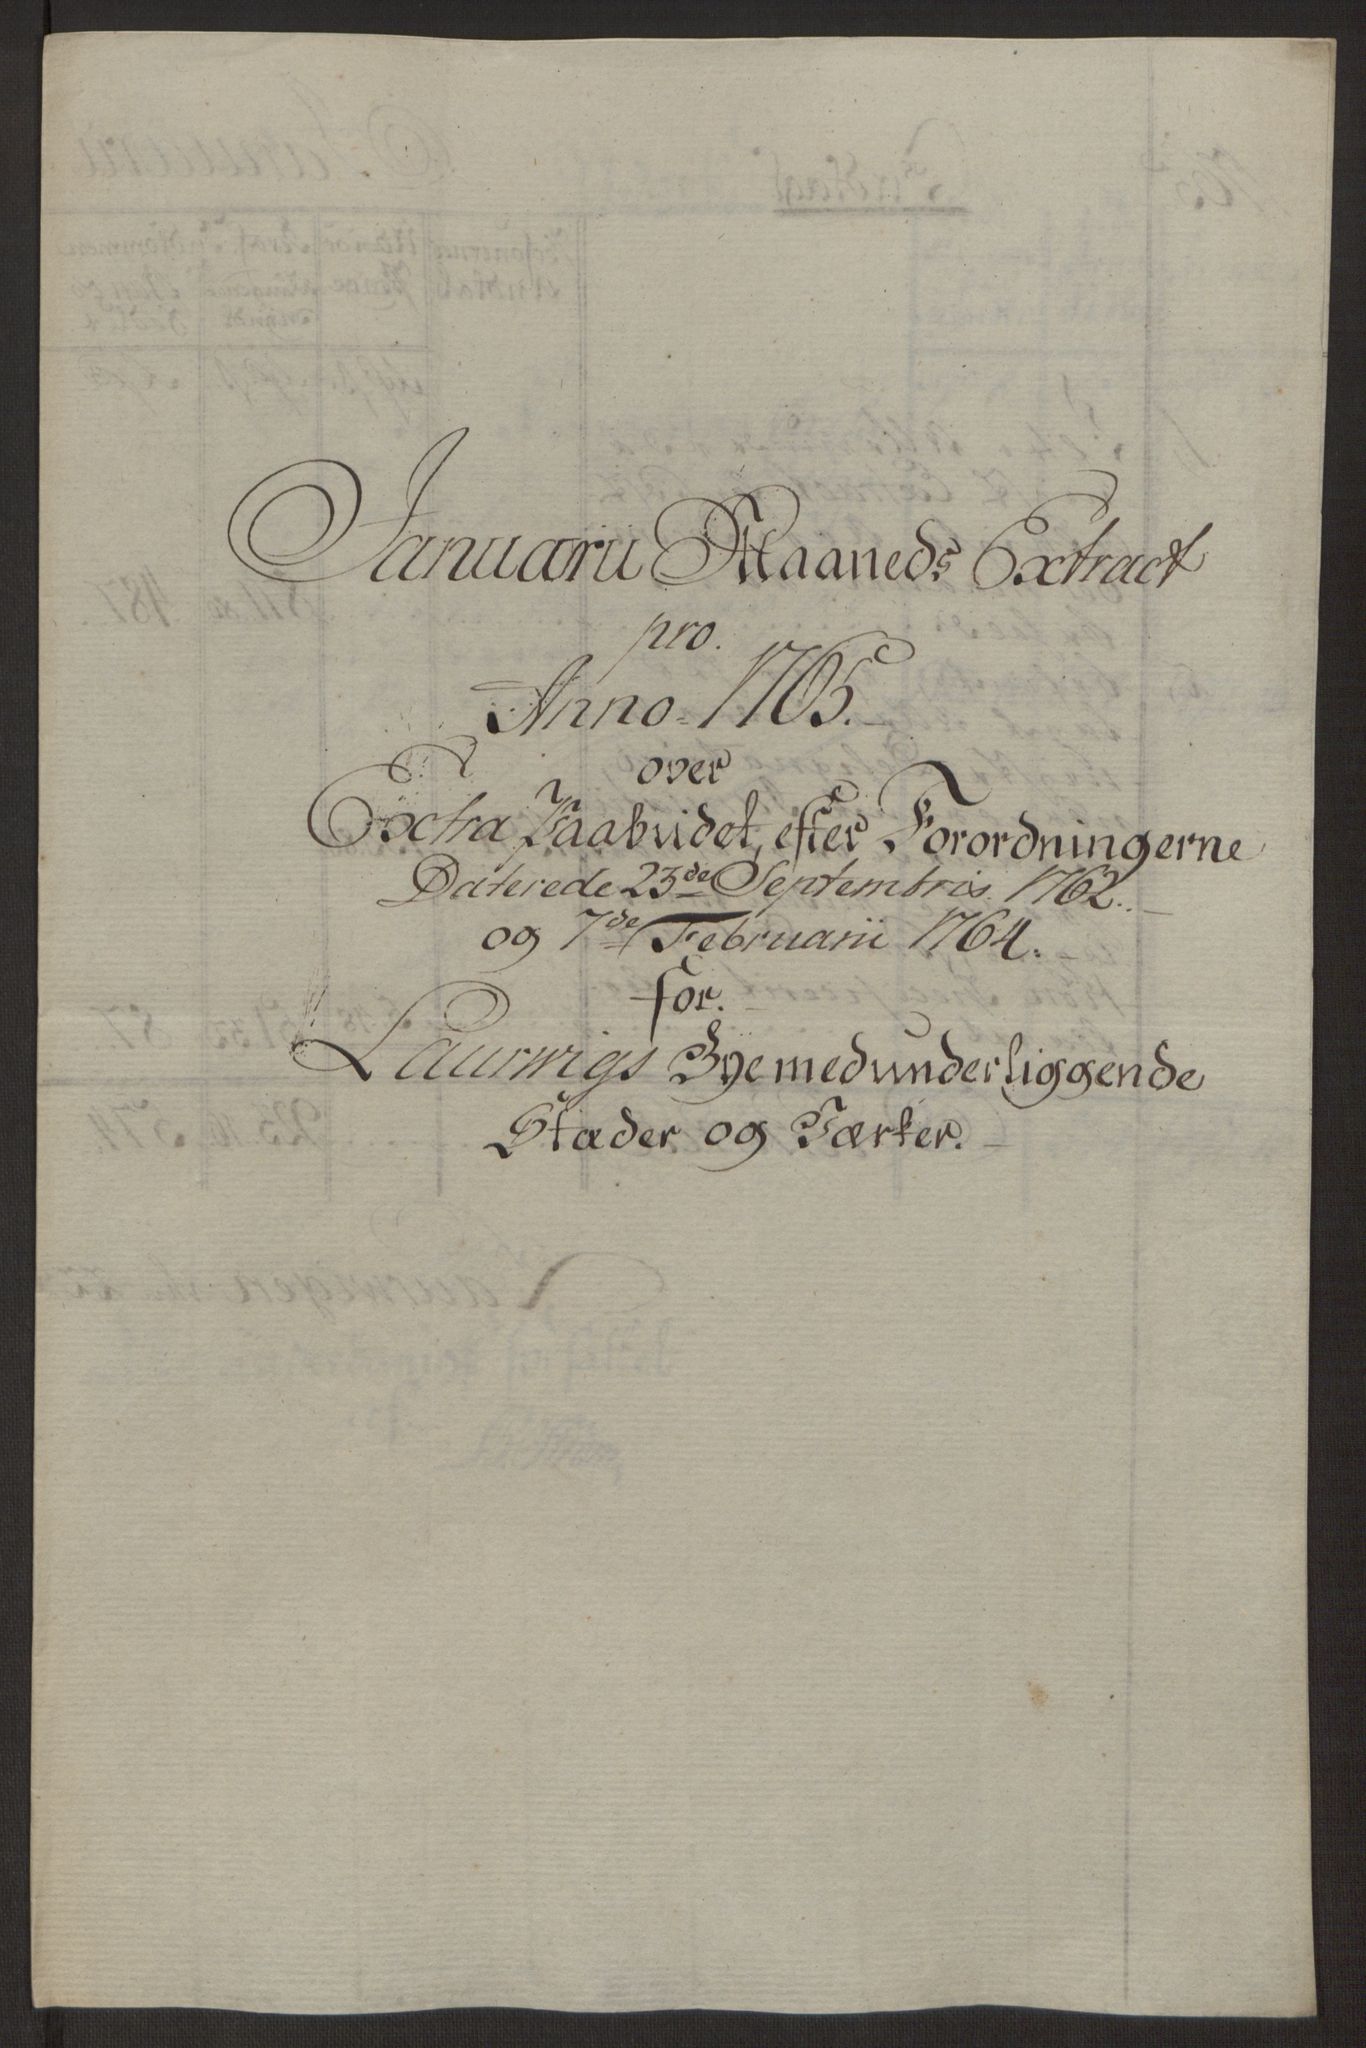 Januarii Maaneds Extract
pro.
Anno 1765.
over
Extra Paabudet, efter Forordningerne
Daterede 23de Septembris 1762.
og 7de Februarii 1764.
for.
Laurwigs Bye med underliggende
Stæder og Tærker.